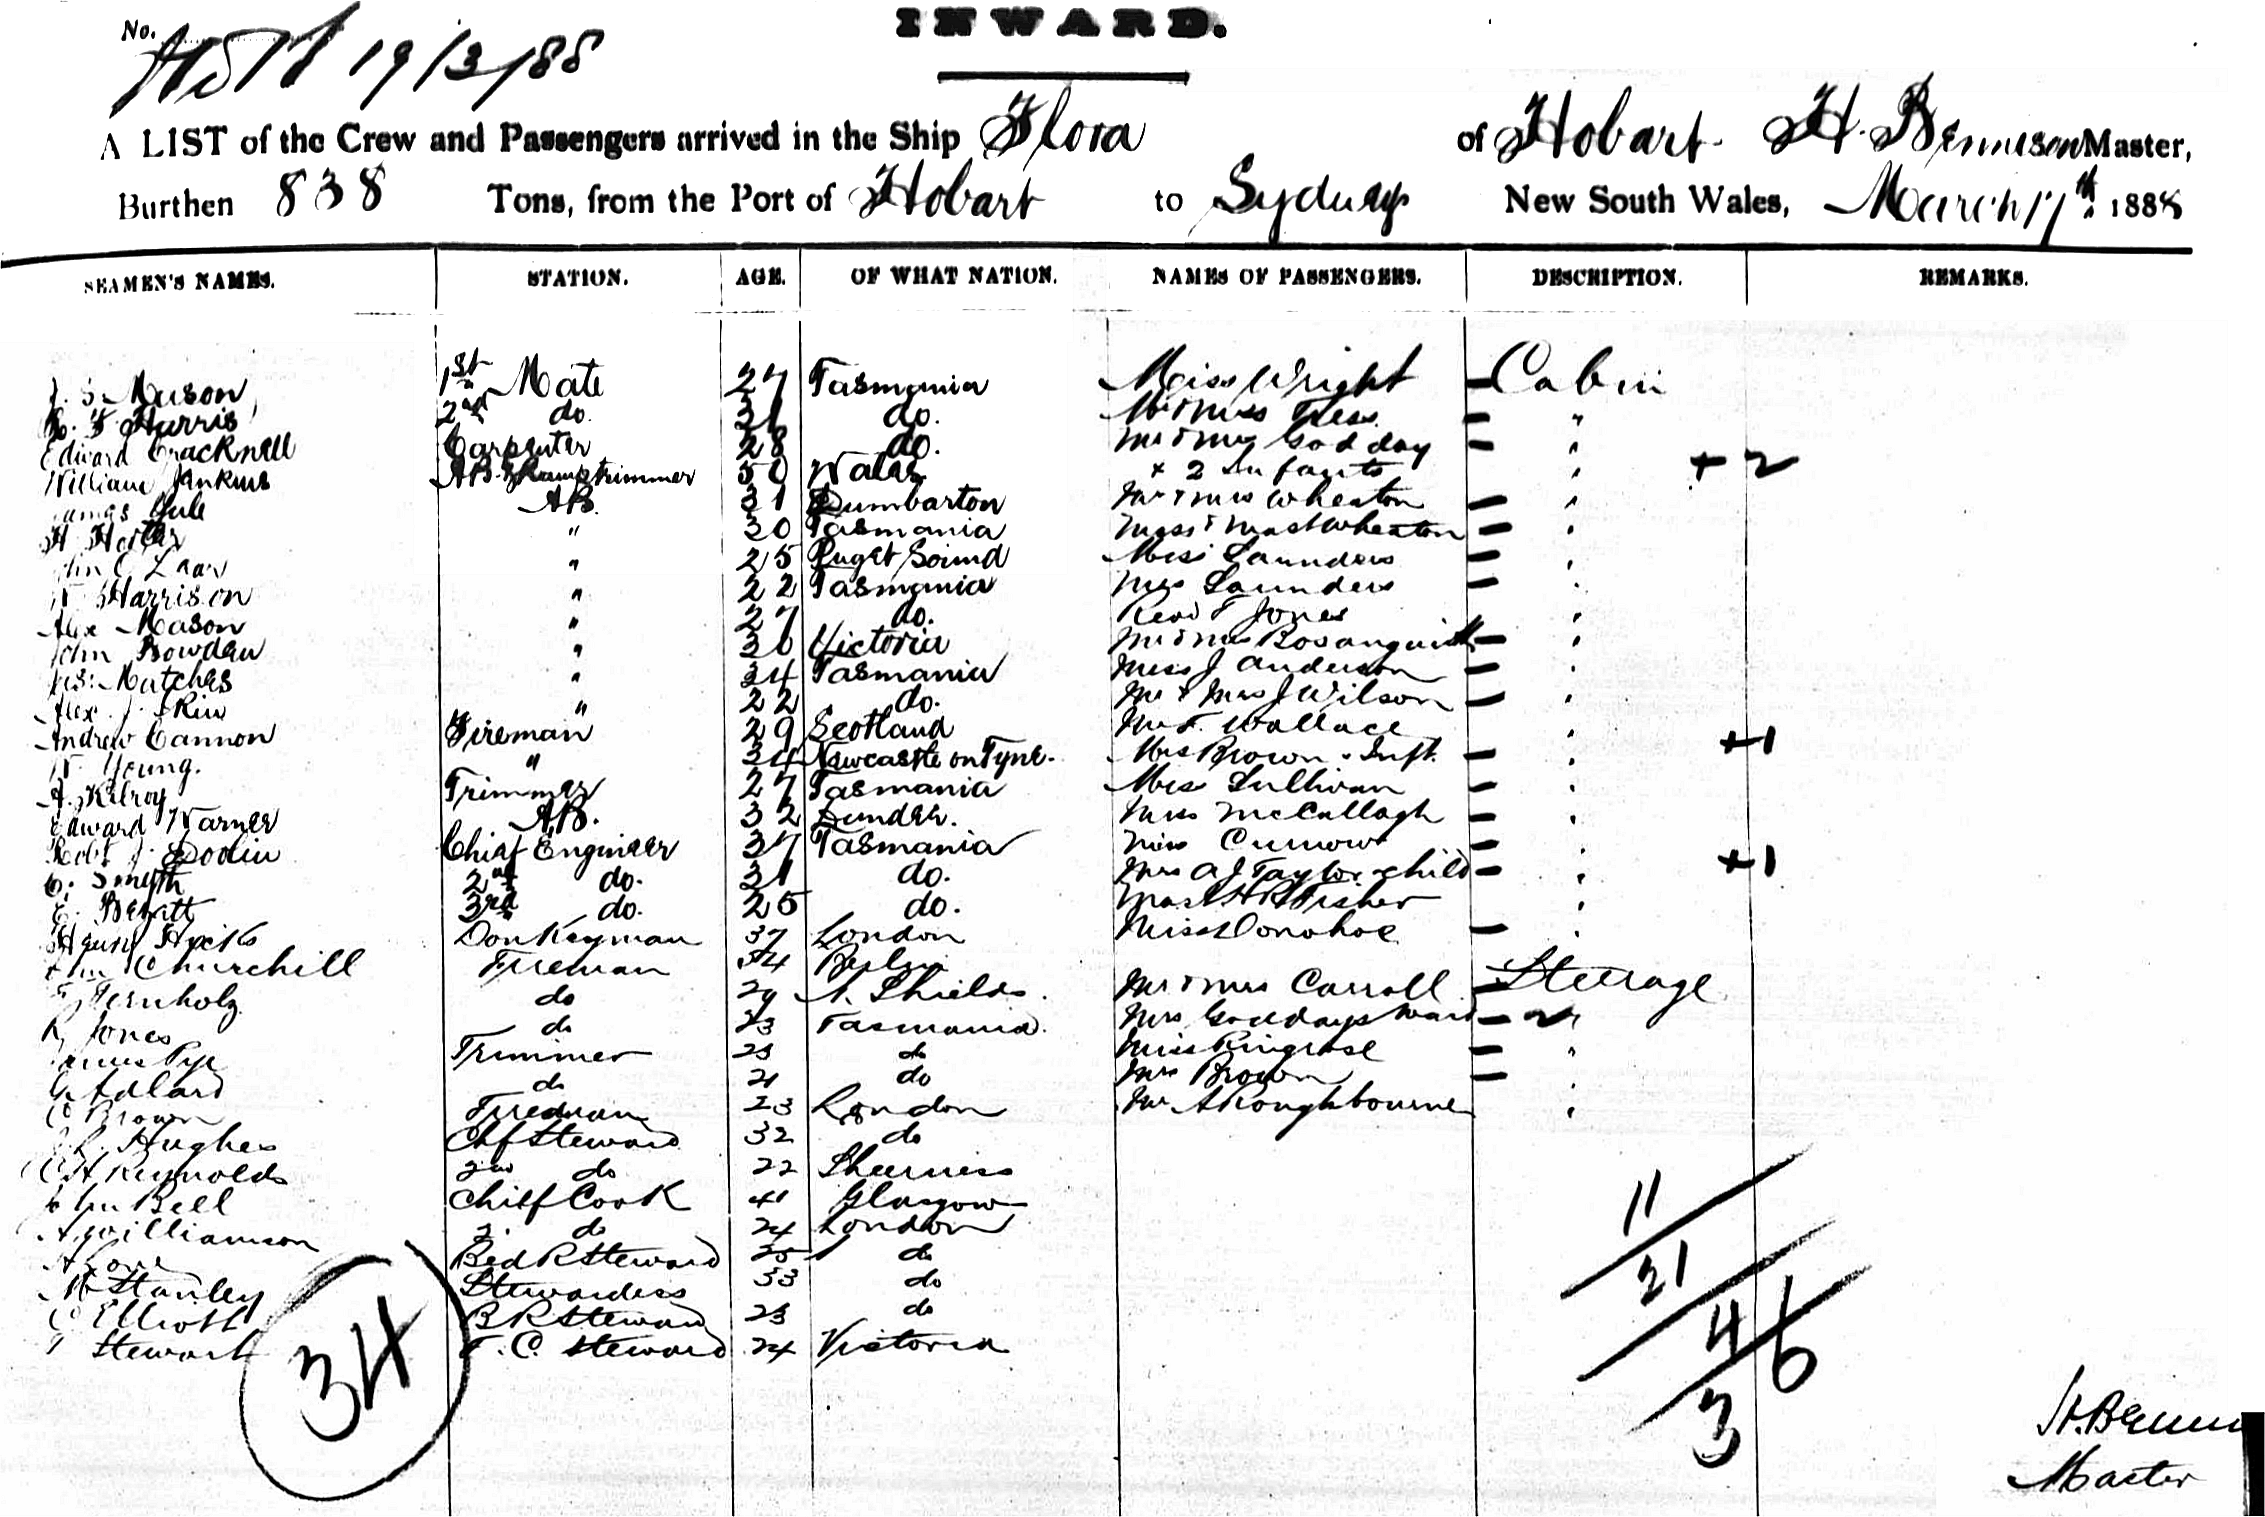 INWARD.
No.
19/3/88
A LIST of the Crew and Passengers arrived in the Ship Flora of Hobart H. Bennison Master,
Burthen 838 Tons, from the Port of Hobart to Sydney New South Wales, March 17th 1888
SEAMEN'S NAMES. STATION. AGE. OF WHAT NATION. NAMES OF PASSENGERS. DESCRIPTION. REMARKS.
Mason 1st Mate 27 Tasmania Miss Wright Cabin
Harris 2nd do. 31 do. Mr & Mrs "
Edward Cracknell Carpenter 28 do. Mr & Mrs Godday "
William Jenkins A.B. & Lamptrimmer 50 Wales + 2 Infants " + 2
James Yule A.B. 31 Dumbarton Mr & Mrs Wheaton "
H " 30 Tasmania Miss & Mast Wheaton "
John C " 25 Puget Sound Miss Saunders "
W Harrison " 22 Tasmania Mrs Saunders "
Alex Mason " 27 do. Revd T Jones "
John Bowden " 30 Victoria Mr & Mrs "
Jas. Matches " 34 Tasmania Miss J Anderson "
Alex. J. " 22 do. Mr & Mrs J Wilson "
Andrew Cannon Fireman 29 Scotland Mr Wallace "
W Young. " 34 Newcastle on Tyne. Mrs Brown & Inft. " +1
A. Kilroy Trimmer 27 Tasmania Mrs Sullivan "
Edward Warner A.B. 32 Dundee. Mrs McCullagh "
Robt J. Chief Engineer 37 Tasmania Miss Curnow "
C. Smyth 2nd do. 31 do. Mrs A J Taylor & child " +1
E. 3rd do. 25 do. Mast H R Fisher "
Henry Hicks Donkeyman 37 London Miss Donohoe "
John Churchill Fireman 34 Berlin
Fernholz do 29 N. Shields. Mr & Mrs Carroll Steerage
R Jones do 23 Tasmania. Mrs Goddays Maid "
James Pye Trimmer 23 do Miss Ringrose "
G Adlard do 21 do Mrs Brown "
C Brown Fireman 23 London Mr A Roughbourne "
Hughes Chf Steward 32 do
C H Reynolds 2nd do 22 Sheerness
John Bell Chief Cook 41 Glasgow
A Williamson 2 do 24 London
A Bed R Steward 25 do
M Stanley Stewardess 33 do
C Elliott B R Steward 23 do
Stewart F. C. Steward 24 Victoria
34
11
21
4 6
3
H. Benni
Master